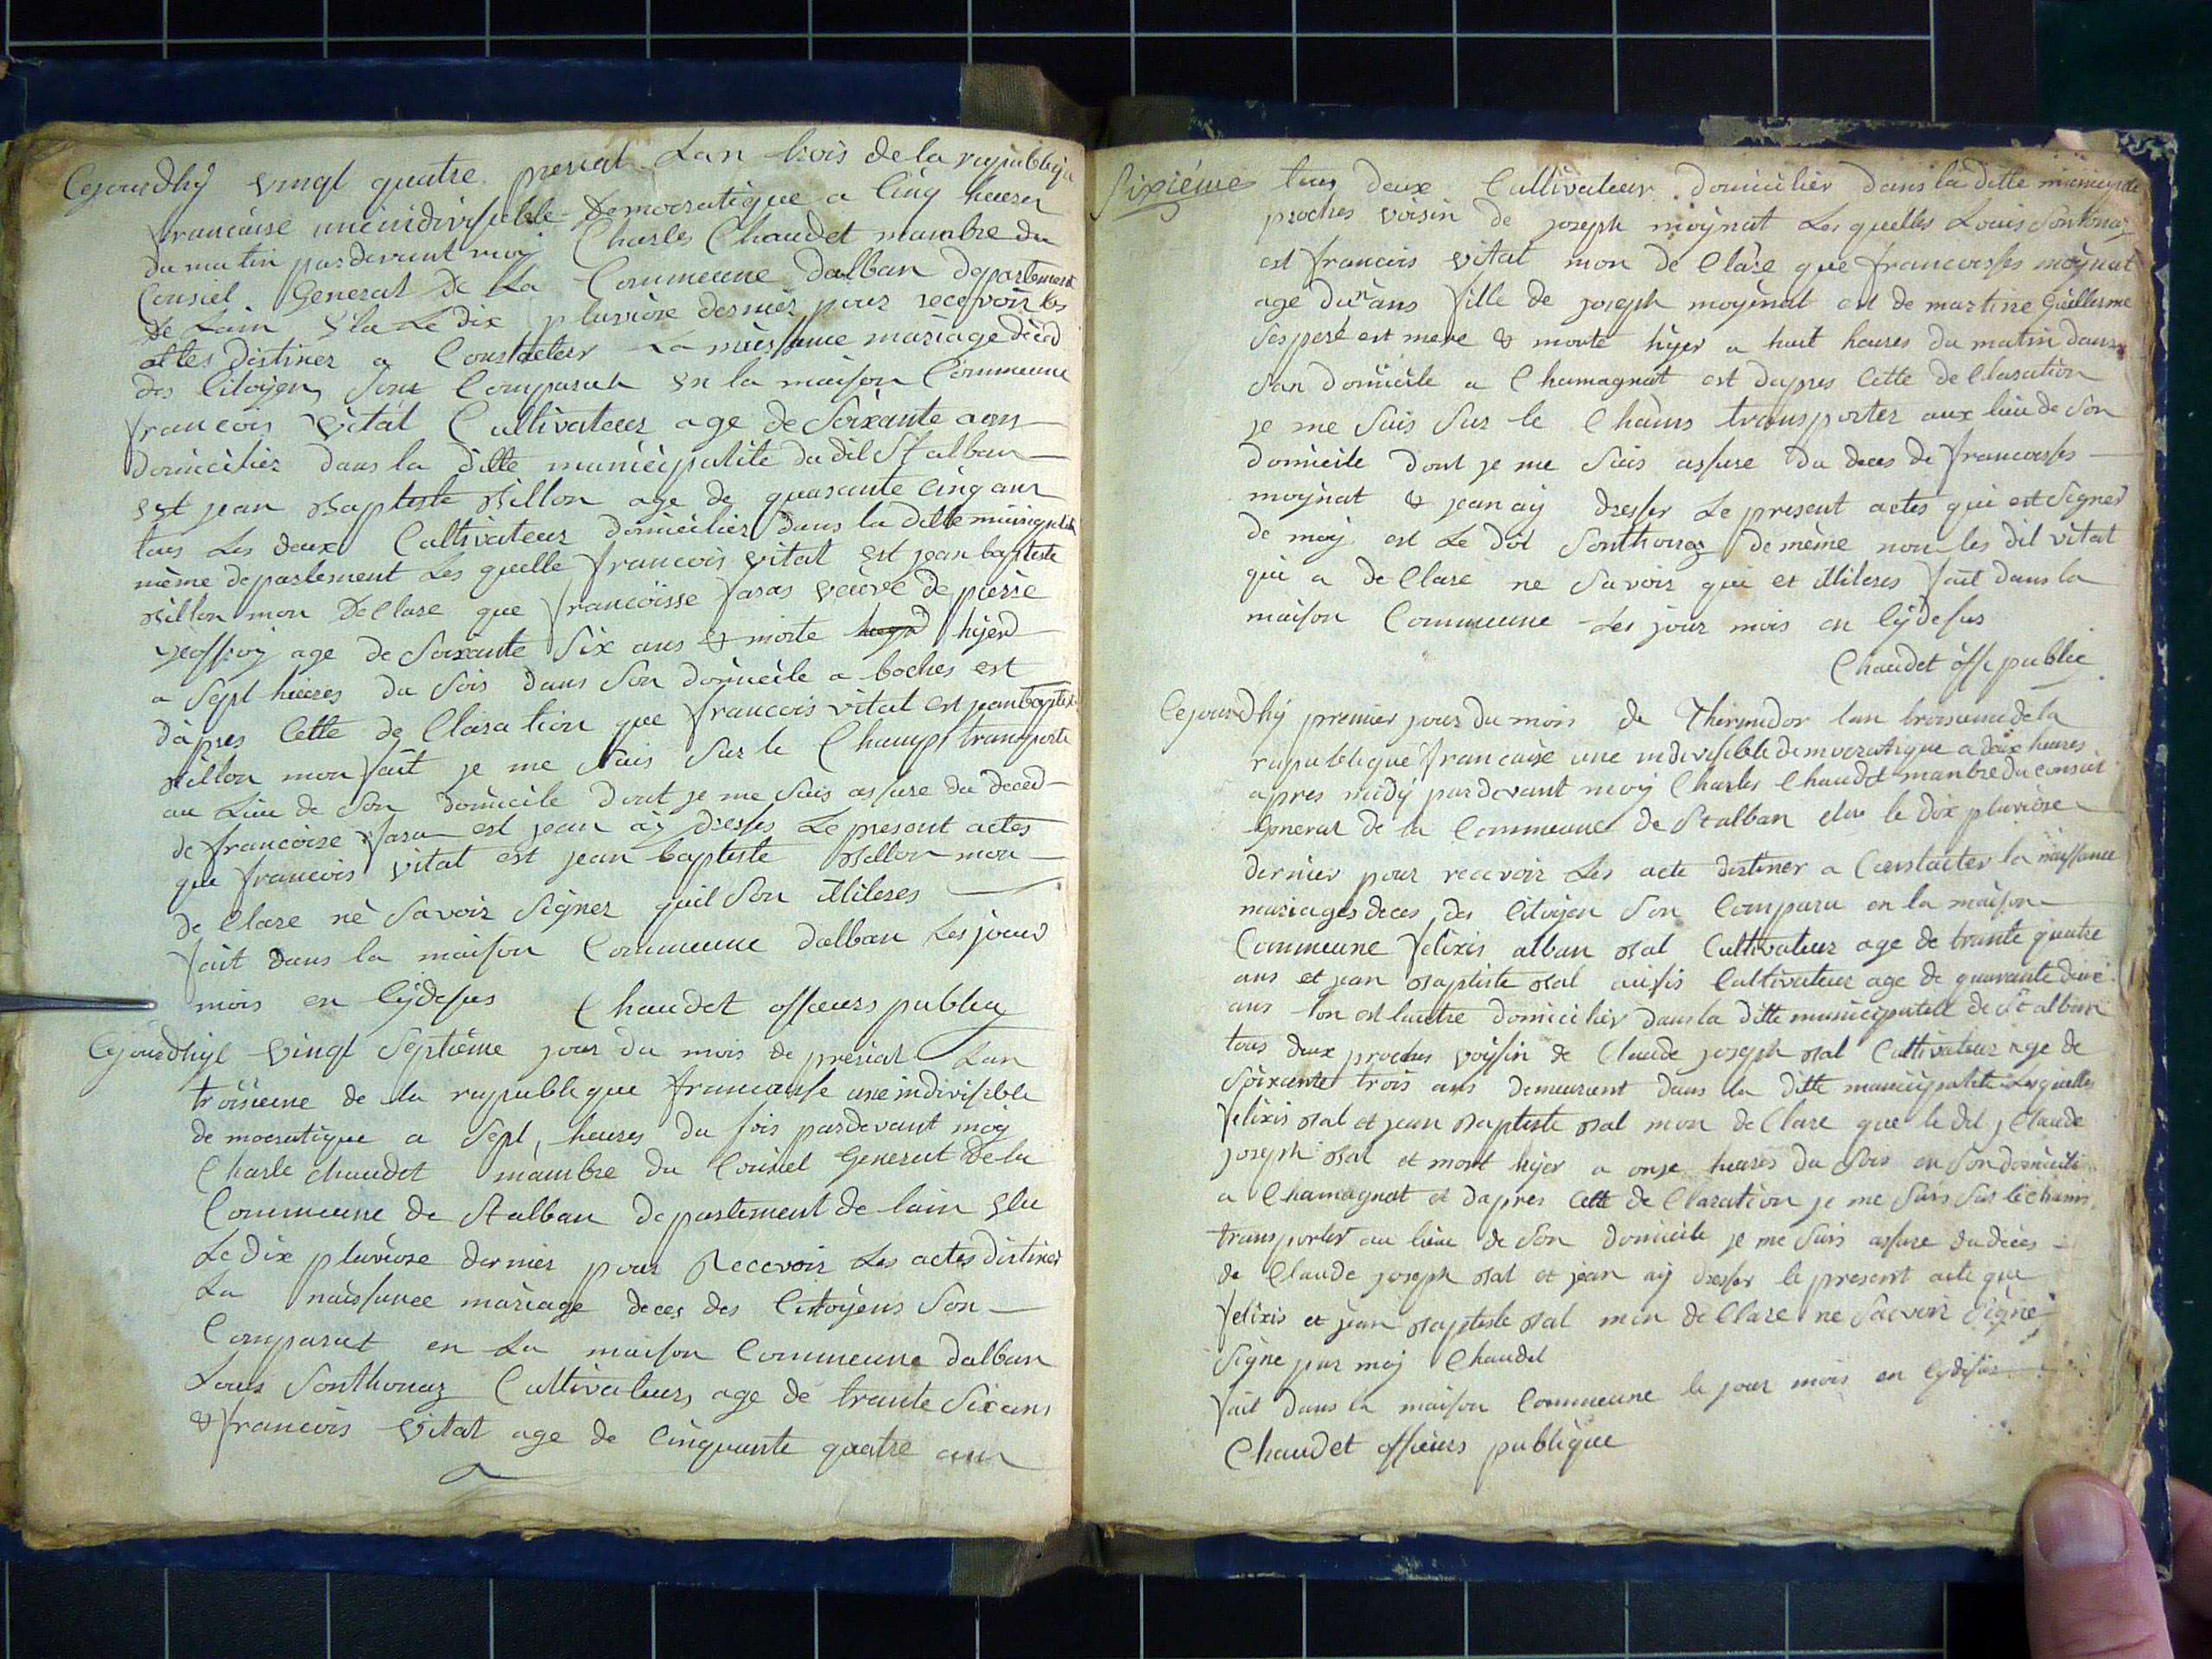 Cejourdhy vingt quatre prerial Lan trois de la republiqu
francaise une indivisible Democratique a Cinq heures
du matin pardevant moy Charles Chaudet mambre du
Consiel General De La Commeune dalban departement
De Lain Le dix pluviose dernier pour recevoir les
actes distines a Constateter La naissance mariage deced
des Citoyens Sont Comparut en la maison Commeune
francois vitat Cultivateur age de Soixante ans
domicilier dans la ditte municipalite du dit St alban
est jean Baptiste Billon age de quarante cinq ans
tous Les deux Cultivateur domicilier dans la ditte
même departement Les quelle francois vitat est jean baptiste
Billon mon De Clare que francoisse faras veuve de pierre
jeoffroy age de Soixante Six ans & morte hyerd
a Sept heures du Soir dans Son domicile a boches est
dapres Cette de Claration que francois vitat est jean baptiste
Billon mon fait je me Suis Sur le Champt transporte
au Lieu de Son domicile dont je me Suis assure du deced
de francoise est jean ay dresses Le present actes
que francois vitat est jean baptiste Billon mon
de Clare ne Savoir Signer quil Son illiteres
fait dans la maison Commeune dalban Les jour
mois en Cydesus Chaudet officeurs publiq
Cejourdhyl vingt Septieme jour du mois de prerial Lan
troisieme de la republique francaisse une indivisible
democratique a Sept heures du soir pardevant moy
Charle chaudet mambre du Consiel General de la
Commeune de St alban departement de lain elu
Le dix pluviose dernier pour Recevoir Les actes distiner
La naissance mariage deces des Citoyens Son
Comparut en La maison Commeune dalban
Louis Sonthonaz Cultivateurs age de trante Six ans
& francois vitat age de Cinquante quatre ans
Sixième tous deux Cultivateur domicilier dans la ditte
proches voisin de joseph moynat Les quelles Louis Sonthonaz
est francois vitat mon de Clare que francoisses moynat
age ans fille de joseph moynat est de martine Guillerme
Ses pere est mere & morte hyer a huit heures du matin dans
San domicile a Chamagnat est dapres Cette de Claration
je me Suis Sur le Chams transporter aux lieu de Son
domicile dont je me Suis assure du deces de francoisses
moynat & jean ay dresser Le present actes qui est Signer
de moy est Le dit Sonthonaz de même non les dit vitat
qui a de Clare ne Savoir qui et illiteres fait dans la
maison Commeune Les jour mois en Cydesus
Chaudet offi public
Cejourdhy premier jour du mois de Thermidor lan troisieme de la
republique francaise une indivisible democratique a deux heures
apres midy pardevant moy Charles Chaudet manbre du consiel
General de la Commeune de St alban elue le dix pluviose
dernier pour recevoir Les acte distiner a Constacter la naissance
mariages deces des Citoyen Son Comparu en la maison
Commeune felixis alban Bal Cultivateur age de trante quatre
ans et jean Baptiste Bal aussis Cultivateur age de quarante deux
ans lon est lautre domicilier dans la ditte municipalite de St alban
tous deux proches voysin de Claude joseph Bal Cultivateur age de
Soixante trois ans demeurant dans la ditte municipalite Lesquelles
felixis Bal et jean Baptiste Bal mon de Clare que le dit Claude
joseph Bal et mort hyer a onze heures du Soir en Son domicile
a Chamagnat et dapres Cette de Claration je me Suis Sur le chams
transporter au lieu de Son domicile je me Suis assure du deces
de Claude joseph Bal et jean ay dresser le present acte que
felixis et jean Baptiste Bal mon de Clare ne Savoir Signe
Signe par moy Chaudet
fait dans la maison Commeune le jour mois en Cydesus
Chaudet officeurs publique